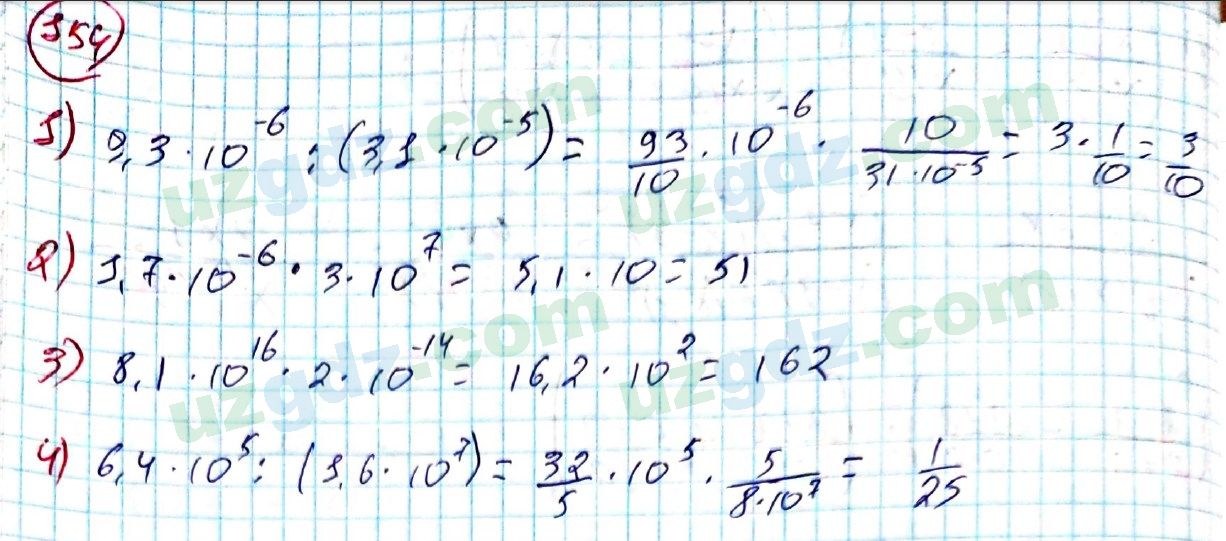 154
1) 9,3 · 10⁻⁶ : (3,1 · 10⁻⁵) = 93/10 · 10⁻⁶ · 10/(31 · 10⁻⁵) = 3 · 1/10 = 3/10
2) 1,7 · 10⁻⁶ · 3 · 10⁷ = 5,1 · 10 = 51
3) 8,1 · 10¹⁶ · 2 · 10⁻¹⁴ = 16,2 · 10² = 162
4) 6,4 · 10⁵ : (1,6 · 10⁷) = 32/5 · 10⁵ · 5/(8 · 10⁷) = 1/25
uzgdz.com
uzgdz.com
uzgdz.com
uzgdz.com